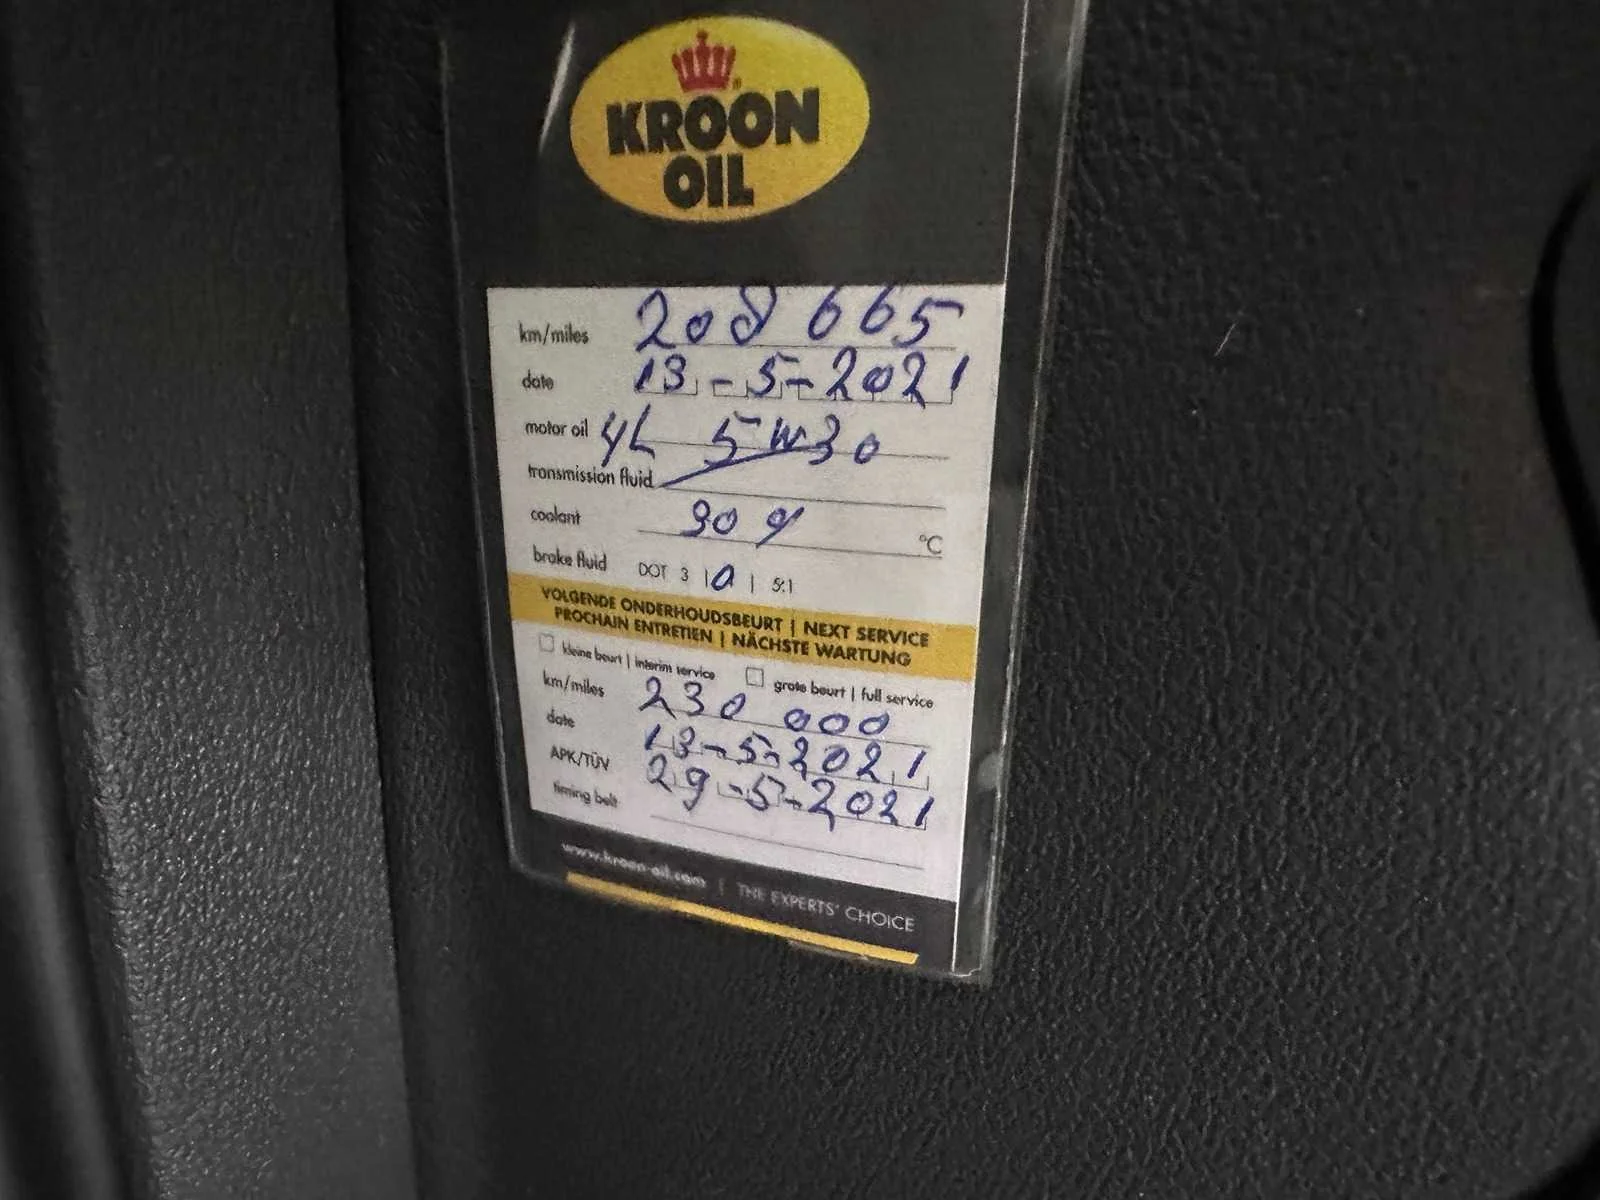 KROON
OIL
km/miles 208 665
date 13-5-2021
motor oil 4L 5W30
transmission fluid
coolant °C
brake fluid DOT 3 | | 5:1
VOLGENDE ONDERHOUDSBEURT | NEXT SERVICE
PROCHAIN ENTRETIEN | NÄCHSTE WARTUNG
kleine beurt | interim service grote beurt | full service
km/miles 230 000
date 13-5-2021
APK/TÜV 29-5-2021
timing belt
www.kroon-oil.com | THE EXPERTS' CHOICE